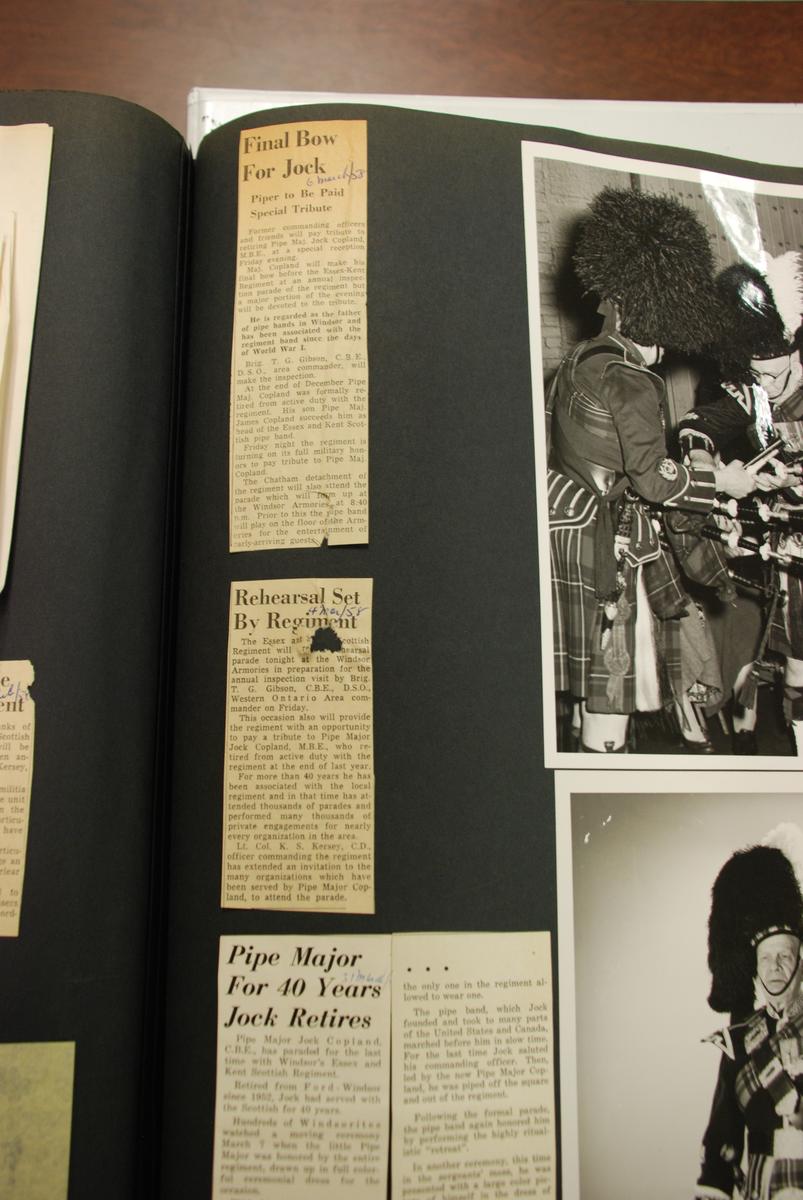 Final Bow
For Jock
6 March/58
Piper to Be Paid
Special Tribute
Former commanding officers
and friends will pay tribute to
retiring Pipe Maj. Jock Copland,
M.B.E., at a special reception
Friday evening.
Maj. Copland will make his
final bow before the Essex-Kent
Regiment at an annual inspec-
tion parade of the regiment but
a major portion of the evening
will be devoted to the tribute.
He is regarded as the father
of pipe bands in Windsor and
has been associated with the
regiment band since the days
of World War I.
Brig. T. G. Gibson, C.B.E.,
D.S.O., area commander, will
make the inspection.
At the end of December Pipe
Maj. Copland was formally re-
tired from active duty with the
regiment. His son Pipe Maj.
James Copland succeeds him as
head of the Essex and Kent Scot-
tish pipe band.
Friday night the regiment is
turning on its full military hon-
ors to pay tribute to Pipe Maj.
Copland.
The Chatham detachment of
the regiment will also attend the
parade which will form up at
the Windsor Armories at 8:40
p.m. Prior to this the pipe band
will play on the floor of the Arm-
ories for the entertainment of
early-arriving guests.
Rehearsal Set
4 Mar/58
By Regiment
The Essex Scottish
Regiment will
parade tonight at the Windsor
Armories in preparation for the
annual inspection visit by Brig.
T. G. Gibson, C.B.E., D.S.O.,
Western Ontario Area com-
mander on Friday.
This occasion also will provide
the regiment with an opportunity
to pay a tribute to Pipe Major
Jock Copland, M.B.E., who re-
tired from active duty with the
regiment at the end of last year.
For more than 40 years he has
been associated with the local
regiment and in that time has at-
tended thousands of parades and
performed many thousands of
private engagements for nearly
every organization in the area.
Lt. Col. K. S. Kersey, C.D.,
officer commanding the regiment
has extended an invitation to the
many organizations which have
been served by Pipe Major Cop-
land, to attend the parade.
Pipe Major
For 40 Years
Jock Retires
Pipe Major Jock Copland,
C.B.E., has paraded for the last
time with Windsor's Essex and
Kent Scottish Regiment.
Retired from Ford-Windsor
since 1952, Jock had served with
the Scottish for 40 years.
Hundreds of Windsorites
watched a moving ceremony
March 7 when the little Pipe
Major was honored by the entire
regiment, drawn up in full color-
ful ceremonial dress for the
occasion.
. . .
the only one in the regiment al-
lowed to wear one.
The pipe band, which Jock
founded and took to many parts
of the United States and Canada,
marched before him in slow time.
For the last time Jock saluted
his commanding officer. Then,
led by the new Pipe Major Cop-
land, he was piped off the square
and out of the regiment.
Following the formal parade,
the pipe band again honored him
by performing the highly ritual-
istic "retreat".
In another ceremony, this time
in the sergeants' mess, he was
presented with a large color pic-
of himself in the dress of